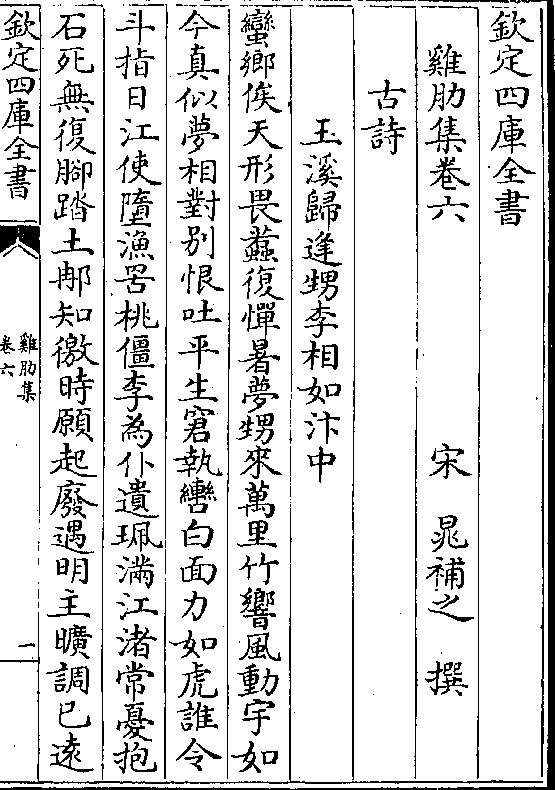 欽定四庫全書
雞肋集卷六
宋 晁補之 撰
古詩
玉溪歸逢甥李相如汴中
蠻鄉俟天形畏蠚復憚暑夢甥來萬里竹響風動宇如
今真似夢相對别恨吐平生窘執轡白面力如虎誰令
斗指日江使墮漁罟桃僵李為仆遺珮滿江渚常憂抱
石死無復腳踏土郍知徼時願起廢遇明主曠調已遠
欽定四庫全書
雞肋集
卷六
一